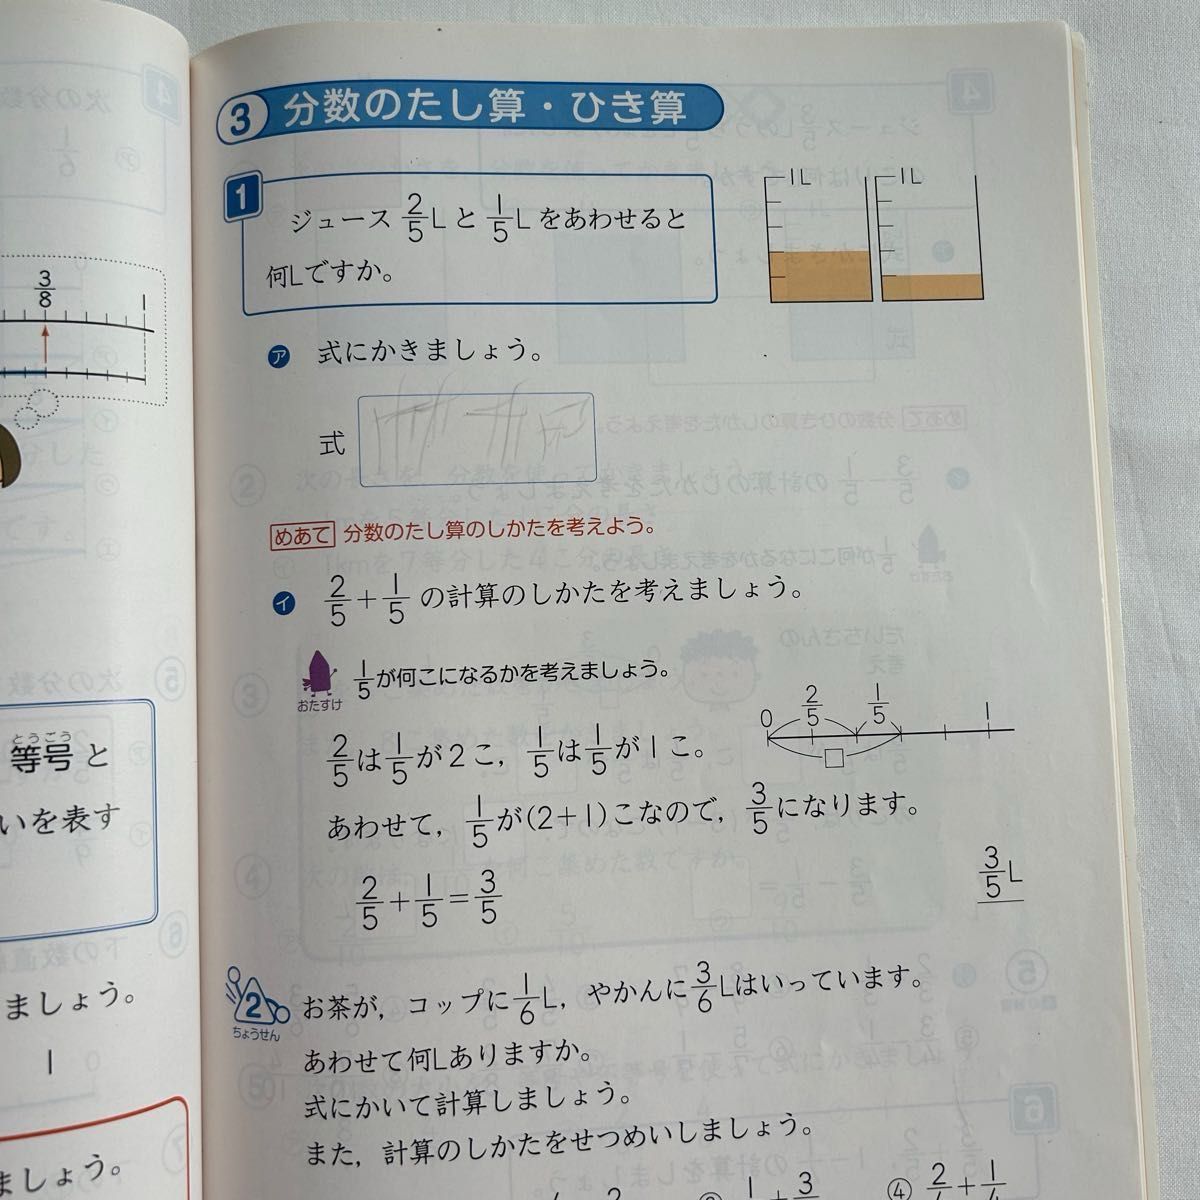 3 分数のたし算・ひき算
1
ジュース 2/5 L と 1/5 L をあわせると
何Lですか。
1L
1L
ア 式にかきましょう。
式
めあて 分数のたし算のしかたを考えよう。
イ 2/5+1/5 の計算のしかたを考えましょう。
おたすけ 1/5が何こになるかを考えましょう。
2/5は1/5が2こ, 1/5は1/5が1こ。
0 2/5 1/5 1
□
あわせて, 1/5が(2+1)こなので, 3/5になります。
2/5+1/5=3/5
3/5 L
2 ちょうせん
お茶が, コップに1/6L, やかんに3/6Lはいっています。
あわせて何Lありますか。
式にかいて計算しましょう。
また, 計算のしかたをせつめいしましょう。
3/8
1
とうごう
等号と
いを表す
ましょう。
1
ましょう。